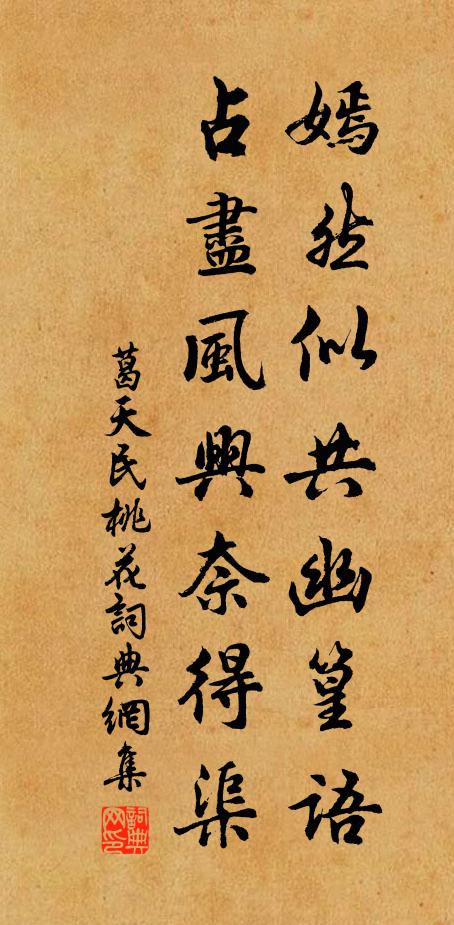 嫣然似共幽篁語
占盡風興奈得渠
葛天民桃花詞典網集
詞典网印